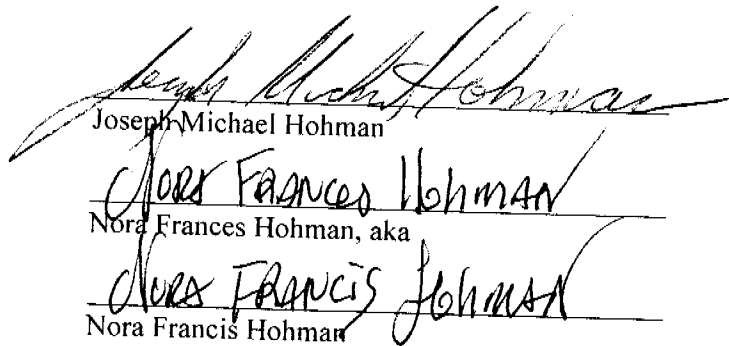 Joseph Michael Hohman
Joseph Michael Hohman
Nora Frances Hohman
Nora Frances Hohman, aka
Nora Francis Hohman
Nora Francis Hohman